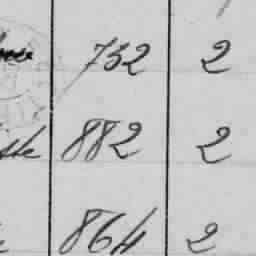 732 2
882 2
864 2